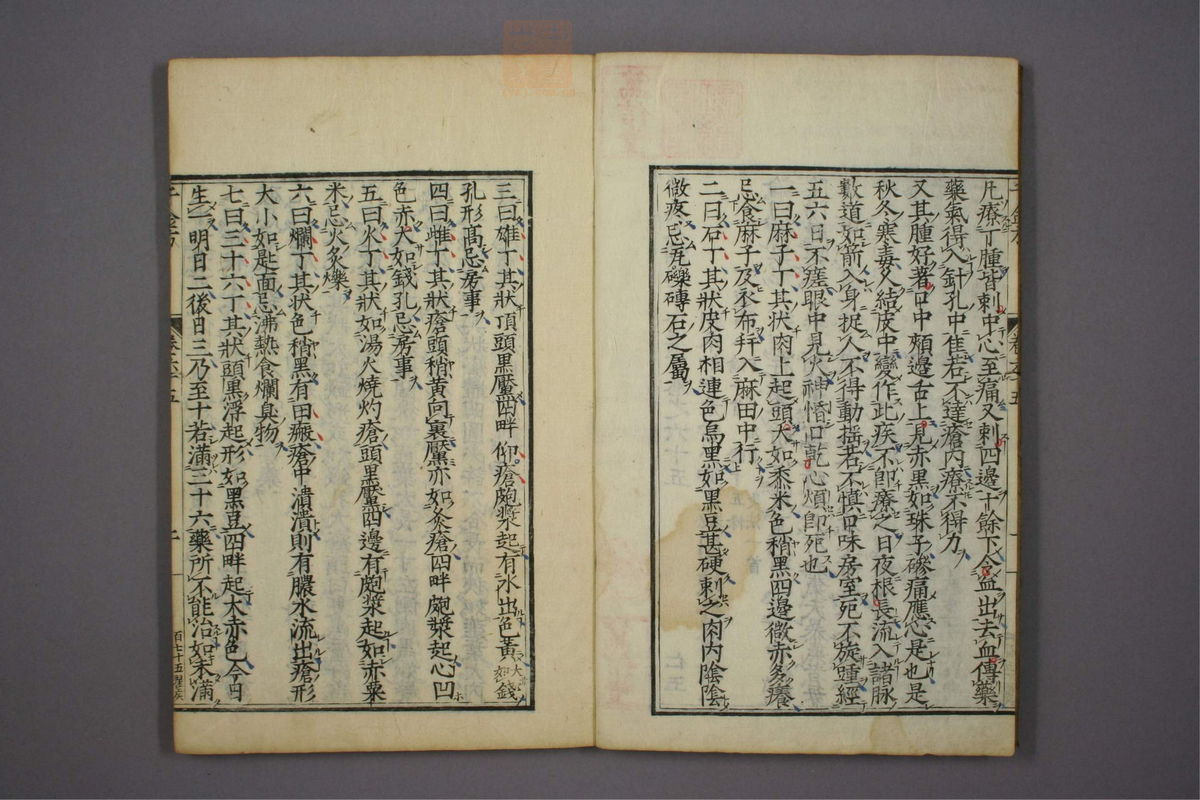 凡療丁腫皆刺中心至痛又刺四邊十餘下令血出去血傅藥
藥氣得入針孔中佳若不達瘡內療不得力
又其腫好著口中頰邊舌上見赤黑如珠子磣痛應心是也是
秋冬寒毒久結皮中變作此疾不即療之日夜根長流入諸脉
數道如箭入身捉人不得動搖若不慎口味房室死不旋踵經
五六日不瘥眼中見火神惛口乾心煩即死也
一曰麻子丁其狀肉上起頭大如黍米色稍黑四邊微赤多癢
忌食麻子及衣布并入麻田中行
二曰石丁其狀皮肉相連色烏黑如黑豆甚硬刺之肉內陰陰
微疼忌瓦礫磚石之屬
三曰雄丁其狀頂頭黑黶四畔仰瘡皰漿起有水出色黃大如錢
孔形高忌房事
四曰雌丁其狀瘡頭稍黃向裏黶亦如灸瘡四畔皰漿起心凹
色赤大如錢孔忌房事
五曰火丁其狀如湯火燒灼瘡頭黑黶四邊有皰漿起如赤粟
米忌火灸爍
六曰爛丁其狀色稍黑有白瘢瘡中潰潰則有膿水流出瘡形
大小如匙面忌沸熱食爛臭物
七曰三十六丁其狀頭黑浮起形如黑豆四畔起大赤色今日
生一明日二後日三乃至十若滿三十六藥所不能治如未滿